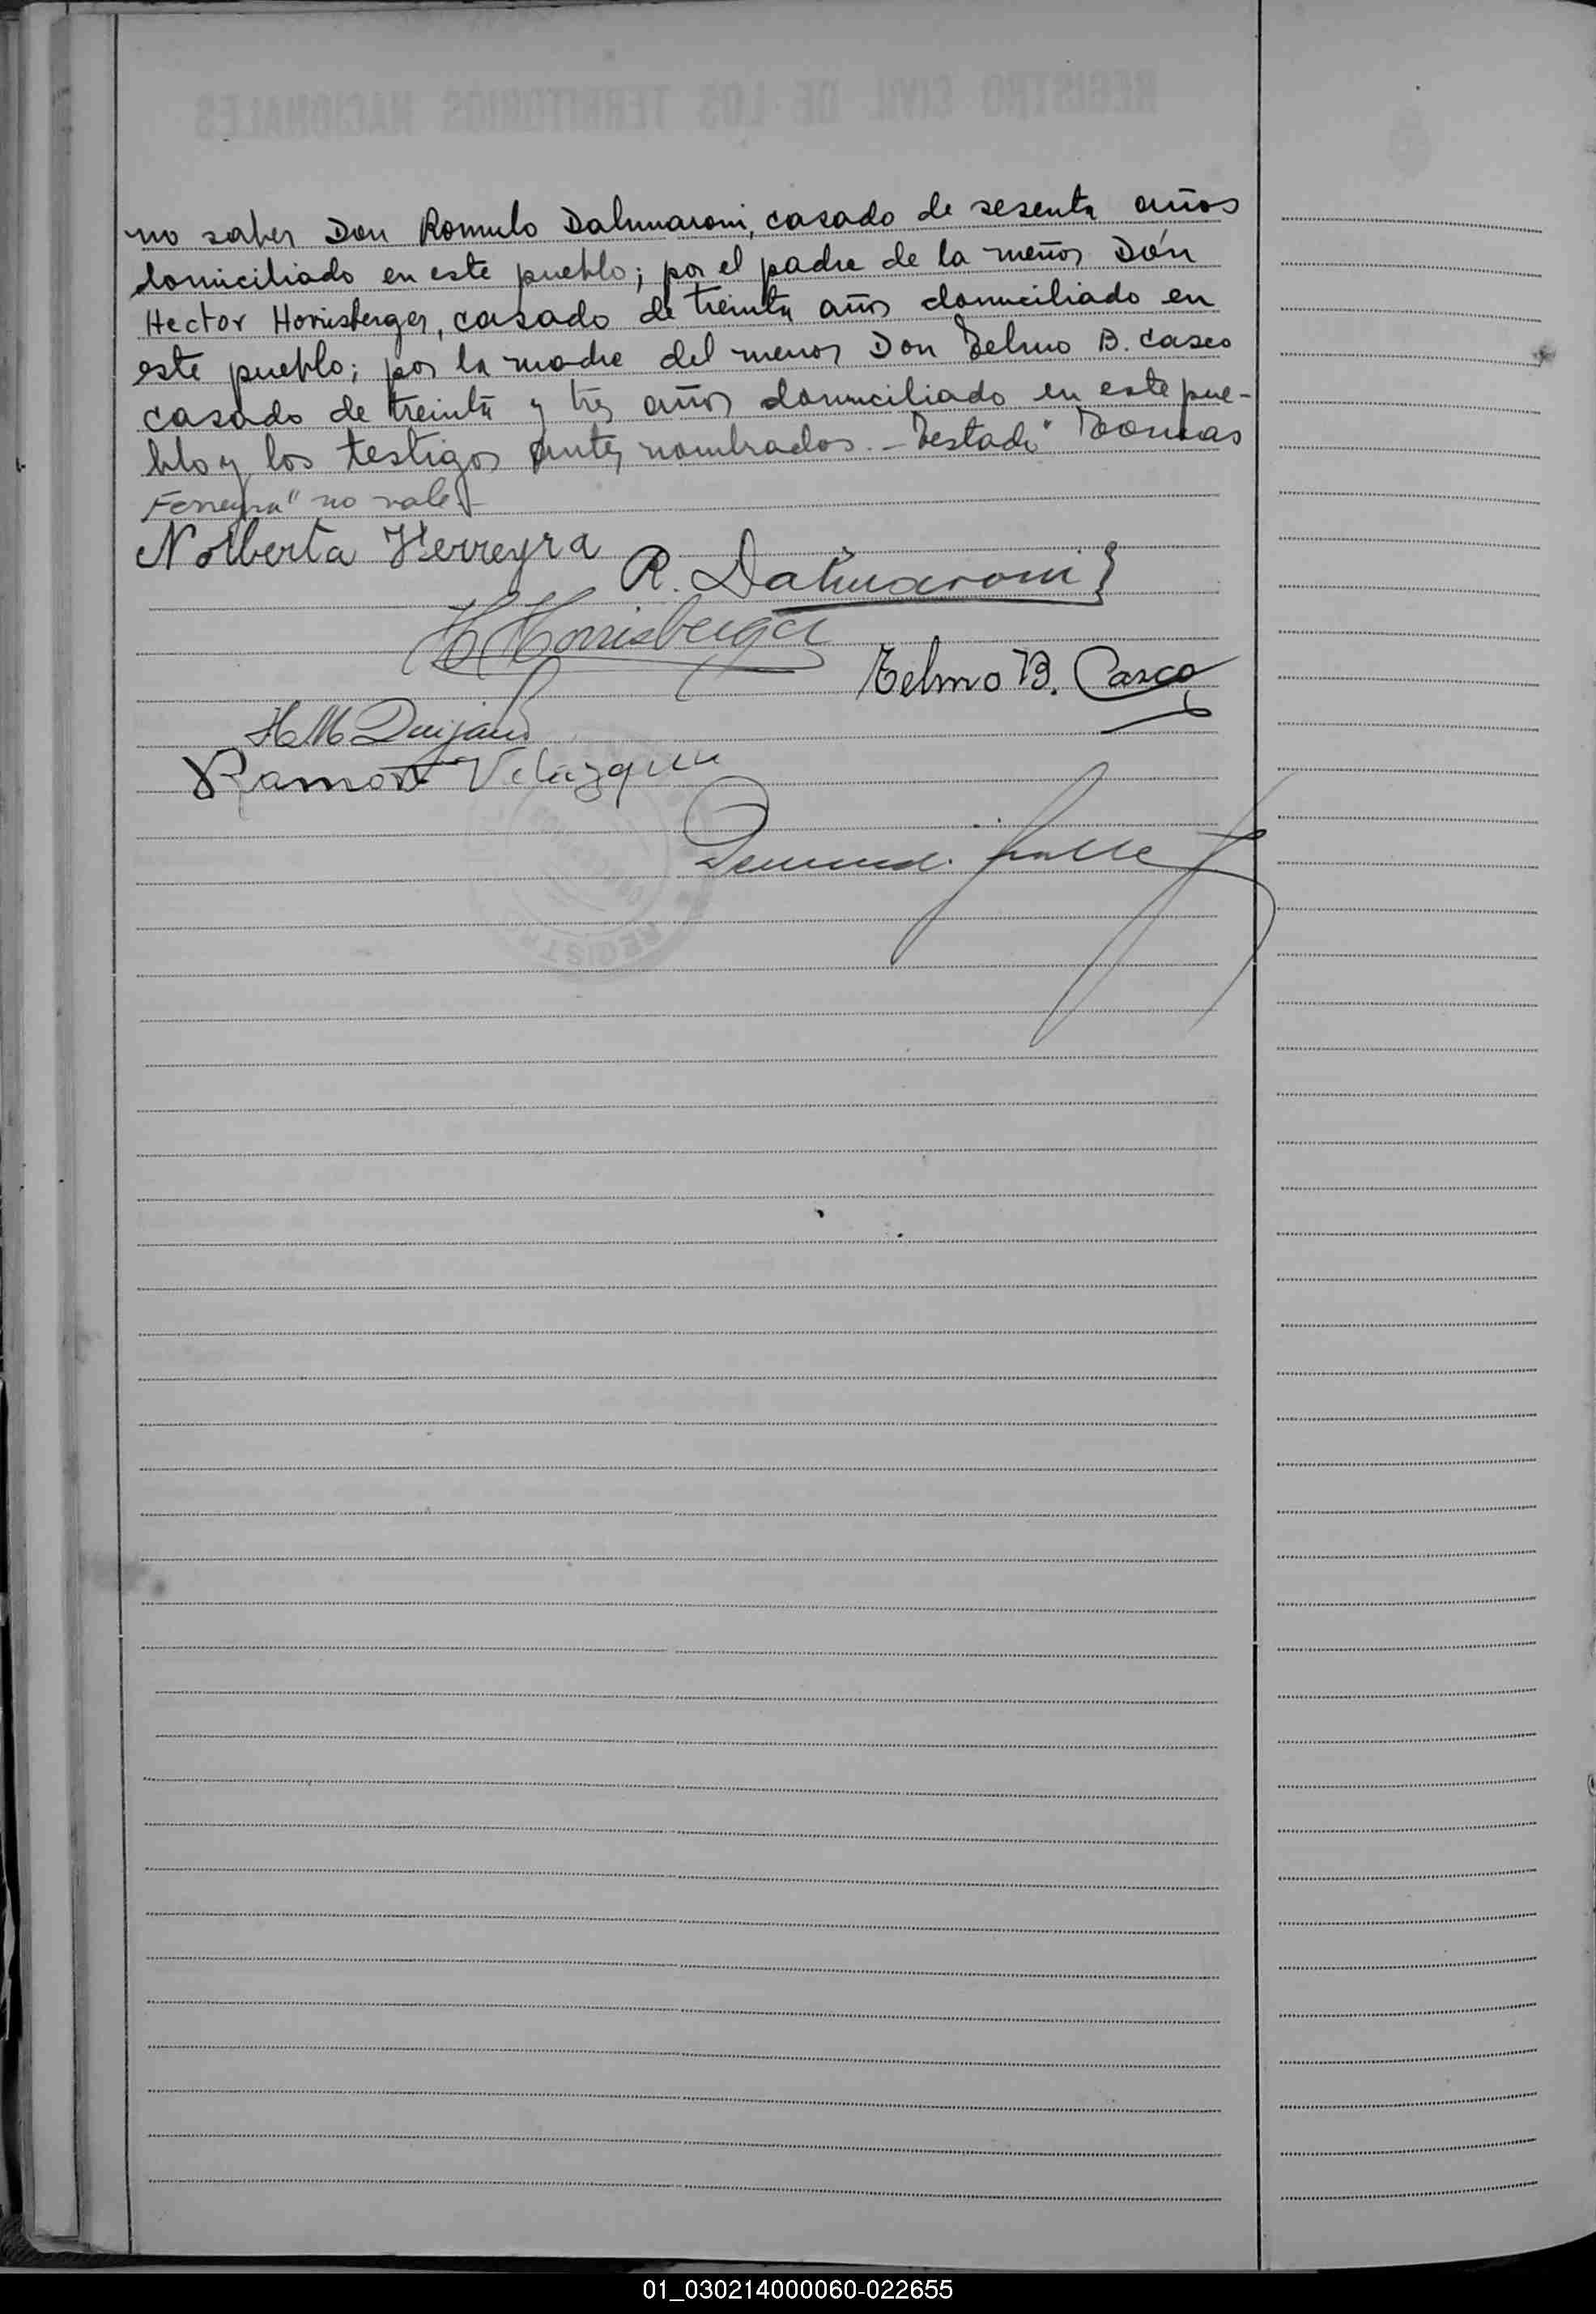 REGISTRO CIVIL DE LOS TERRITORIOS NACIONALES
no saber Don Romulo Dalmaroni, casado de sesenta años
domiciliado en este pueblo; por el padre de la menor Don
Hector Horrisberger, casado de treinta años domiciliado en
este pueblo; por la madre del menor Don Telmo B. Casco
casado de treinta y tres años domiciliado en este pue-
blo y los testigos antes nombrados.- Testado "
Ferreyra" no vale.-
Nolberta Herreyra
R. Dalmaroni
H Horrisberger
Telmo B. Casco
H M Quijano
Ramon Velazquez
REGIST
01_030214000060-022655